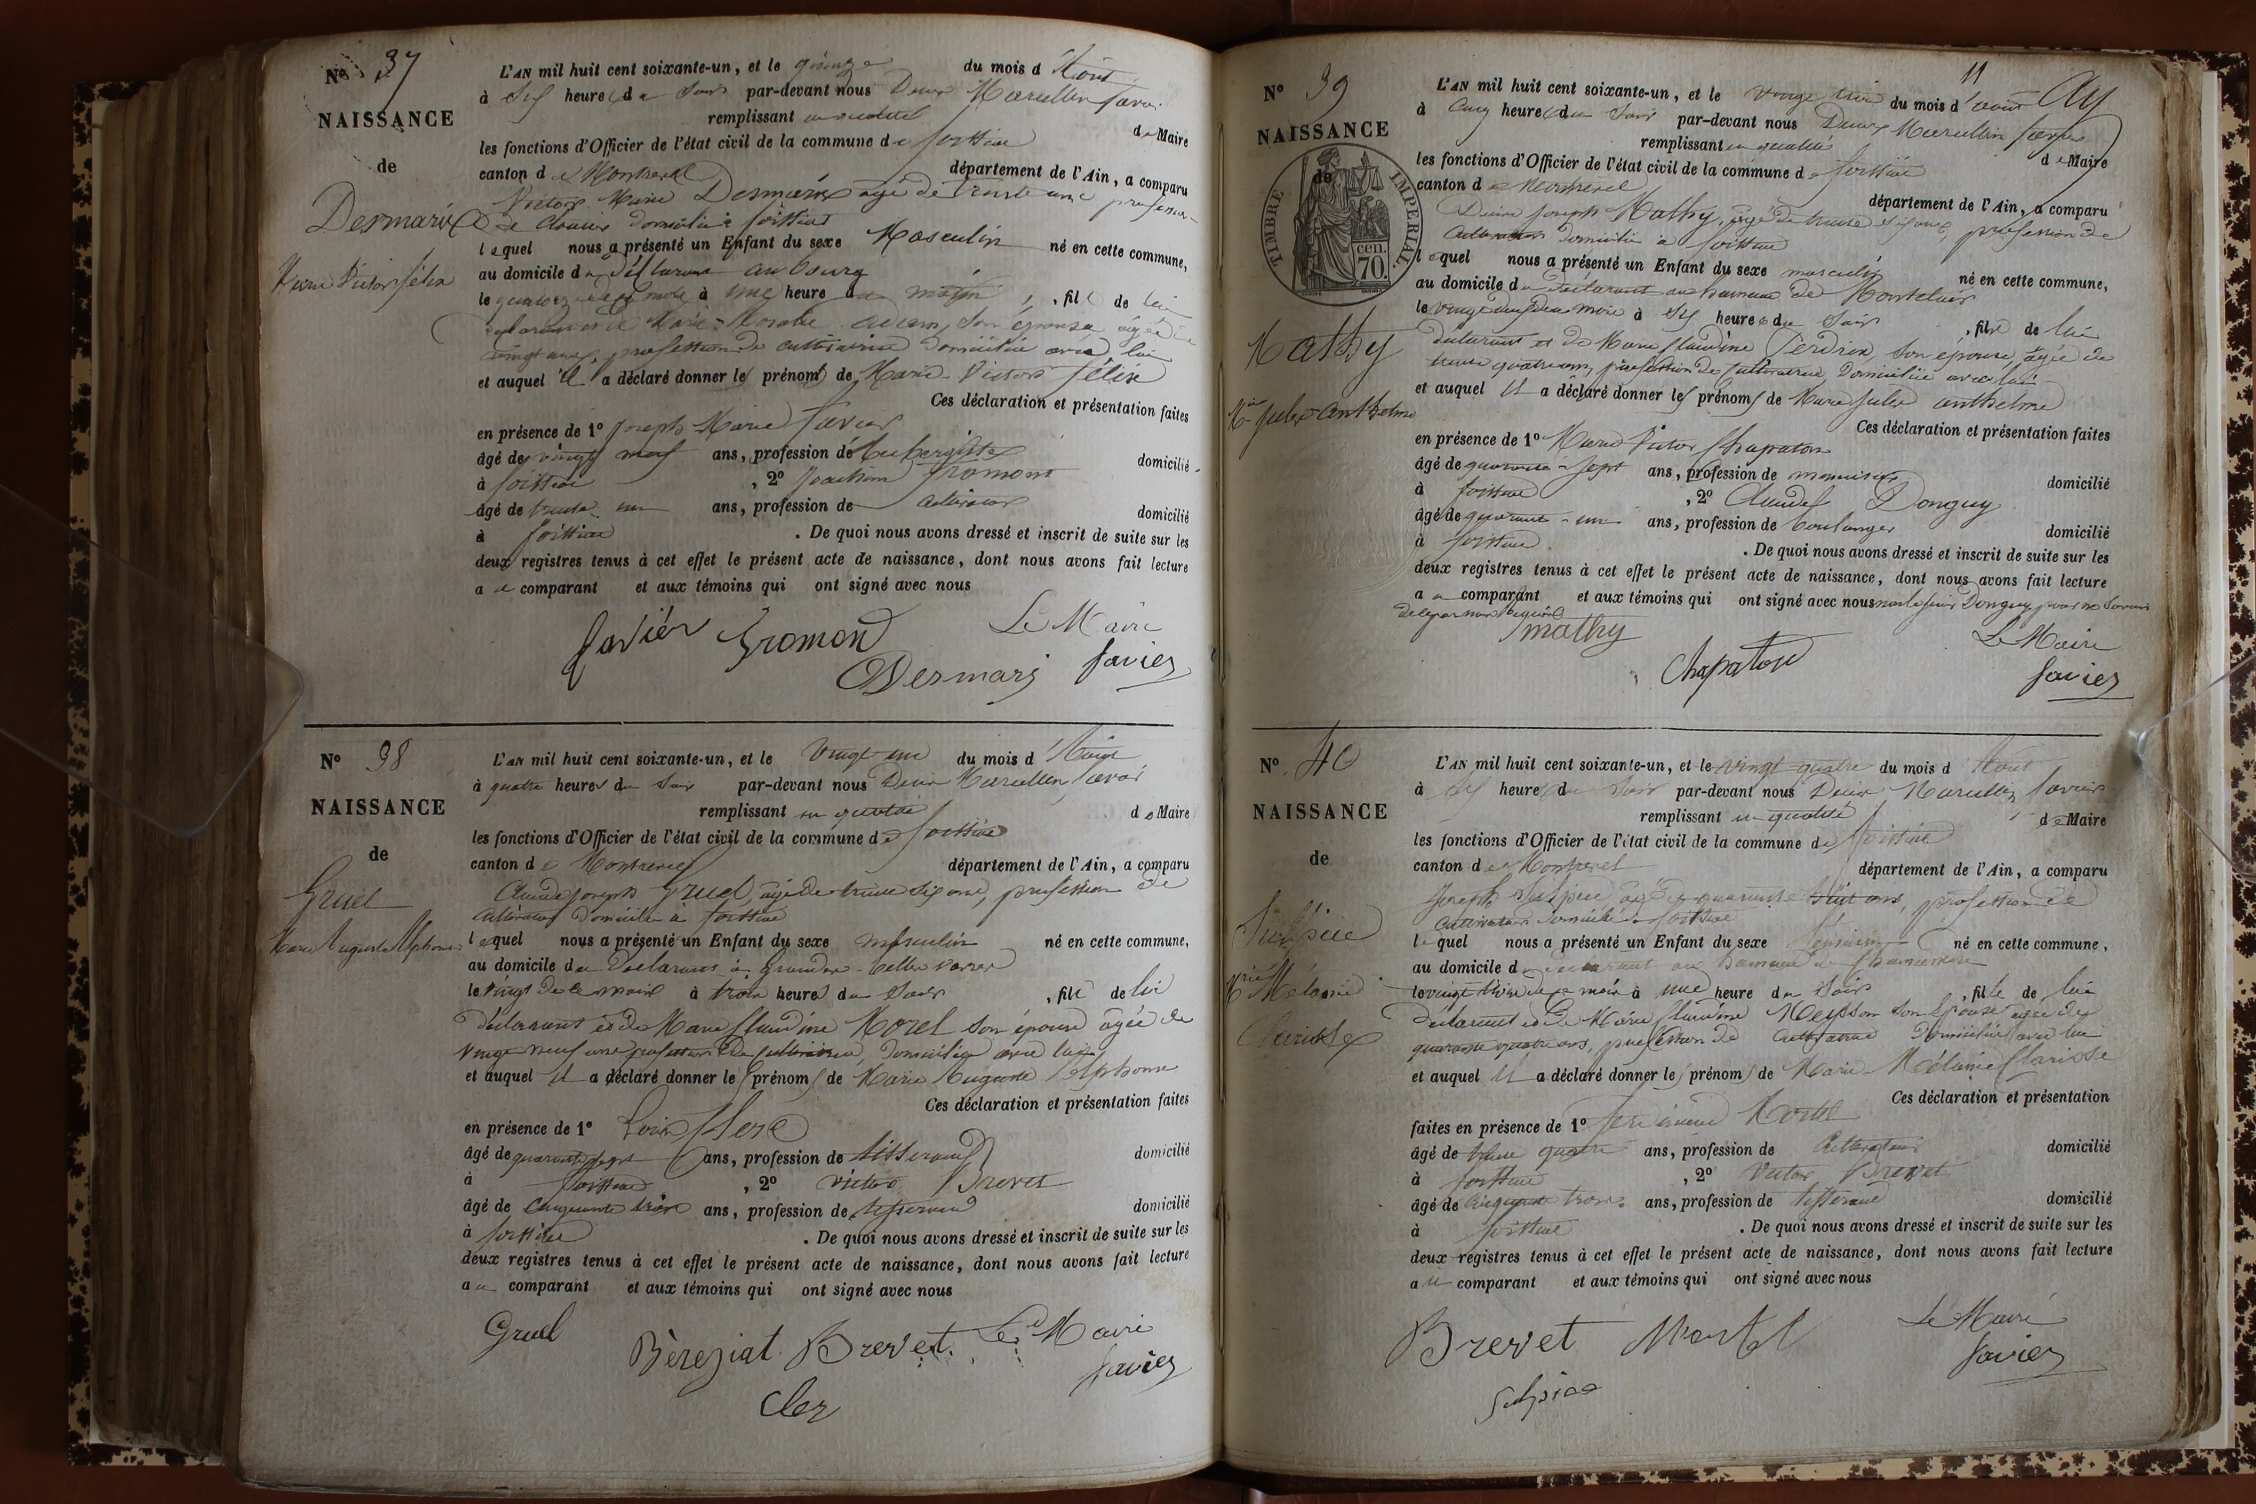 N° 37
NAISSANCE
de
Desmaris
Marie Victor Félix
L'AN mil huit cent soixante-un, et le quinze du mois d'Août
à six heures du soir par-devant nous Denis Marcellin Favier
remplissant en qualité de Maire
les fonctions d'Officier de l'état civil de la commune de Foissiat
canton de Montrevel département de l'Ain, a comparu
Victor Marie Desmaris âgé de trente ans profession
de domicilié à Foissiat
lequel nous a présenté un Enfant du sexe Masculin né en cette commune,
au domicile du déclarant au bourg
le quatorze de ce mois à une heure du matin, fils de lui
déclarant et de Marie son épouse âgée de
vingt ans, profession de cultivatrice domiciliée avec lui
et auquel il a déclaré donner les prénoms de Marie Victor Félix
Ces déclaration et présentation faites
en présence de 1° Joseph Marie Favier
âgé de vingt neuf ans, profession de aubergiste domicilié
à Foissiat, 2° Joachim Gromont
âgé de trente un ans, profession de cultivateur domicilié
à Foissiat. De quoi nous avons dressé et inscrit de suite sur les
deux registres tenus à cet effet le présent acte de naissance, dont nous avons fait lecture
au comparant et aux témoins qui ont signé avec nous
Favier Gromond Le Maire
Desmaris Favier
N° 38
NAISSANCE
de
Gruel
Marie Auguste Alphonse
L'AN mil huit cent soixante-un, et le vingt-un du mois d'Août
à quatre heures du soir par-devant nous Denis Marcellin Favier
remplissant en qualité de Maire
les fonctions d'Officier de l'état civil de la commune de Foissiat
canton de Montrevel département de l'Ain, a comparu
Claude Joseph Gruel, âgé de trente six ans, profession de
cultivateur domicilié à Foissiat
lequel nous a présenté un Enfant du sexe masculin né en cette commune,
au domicile du déclarant à
le vingt de ce mois à trois heures du soir, fils de lui
déclarant et de Marie Claudine Morel son épouse âgée de
vingt neuf ans profession de cultivatrice domiciliée avec lui
et auquel il a déclaré donner les prénoms de Marie Auguste Alphonse
Ces déclaration et présentation faites
en présence de 1° Louis Clerc
âgé de quarante sept ans, profession de tisserand domicilié
à Foissiat, 2° Victor Brevet
âgé de cinquante trois ans, profession de tisserand domicilié
à Foissiat. De quoi nous avons dressé et inscrit de suite sur les
deux registres tenus à cet effet le présent acte de naissance, dont nous avons fait lecture
au comparant et aux témoins qui ont signé avec nous
Gruel Bèreziat Brevet. Le Maire
Clerc Favier
11
N° 39
NAISSANCE
de
TIMBRE IMPERIAL.
70. cen.
Mathy
Mie Jules Anthelme
L'AN mil huit cent soixante-un, et le vingt trois du mois d'août
à cinq heures du soir par-devant nous Denis Marcellin Favier
remplissant en qualité de Maire
les fonctions d'Officier de l'état civil de la commune de Foissiat
canton de Montrevel département de l'Ain, a comparu
Denis Joseph Mathy, âgé de trente six ans, profession de
cultivateur domicilié à Foissiat
lequel nous a présenté un Enfant du sexe masculin né en cette commune,
au domicile du déclarant au hameau de
le vingt deux de ce mois à six heures du soir, fils de lui
déclarant et de Marie Claudine Perdrix son épouse, âgée de
trente quatre ans, profession de cultivatrice domiciliée avec lui
et auquel il a déclaré donner les prénoms de Marie Jules Anthelme
Ces déclaration et présentation faites
en présence de 1° Marie Victor Chapaton
âgé de quarante-sept ans, profession de menuisier domicilié
à Foissiat, 2° Claude Donguy
âgé de quarante-un ans, profession de boulanger domicilié
à Foissiat. De quoi nous avons dressé et inscrit de suite sur les
deux registres tenus à cet effet le présent acte de naissance, dont nous avons fait lecture
au comparant et aux témoins qui ont signé avec nous non le sieur Donguy pour ne savoir
de ce par nous requis
Mathy Le Maire
Chapaton Favier
N° 40
NAISSANCE
de
Sulpice
Mie Mélanie
Clarisse
L'AN mil huit cent soixante-un, et le vingt quatre du mois d'Août
à six heures du soir par-devant nous Denis Marcellin Favier
remplissant en qualité de Maire
les fonctions d'Officier de l'état civil de la commune de Foissiat
canton de Montrevel département de l'Ain, a comparu
Joseph Sulpice âgé de quarante huit ans, profession de
cultivateur domicilié à Foissiat
lequel nous a présenté un Enfant du sexe féminin né en cette commune,
au domicile du déclarant au hameau de
le vingt trois de ce mois à une heure du soir, fille de lui
déclarant et de Marie Claudine Meysson son épouse âgée de
quarante quatre ans, profession de cultivatrice domiciliée avec lui
et auquel il a déclaré donner les prénoms de Marie Mélanie Clarisse
Ces déclaration et présentation
faites en présence de 1° Martel
âgé de trente quatre ans, profession de cultivateur domicilié
à Foissiat, 2° Victor Brevet
âgé de cinquante trois ans, profession de tisserand domicilié
à Foissiat. De quoi nous avons dressé et inscrit de suite sur les
deux registres tenus à cet effet le présent acte de naissance, dont nous avons fait lecture
au comparant et aux témoins qui ont signé avec nous
Brevet Martel Le Maire
Sulpice Favier